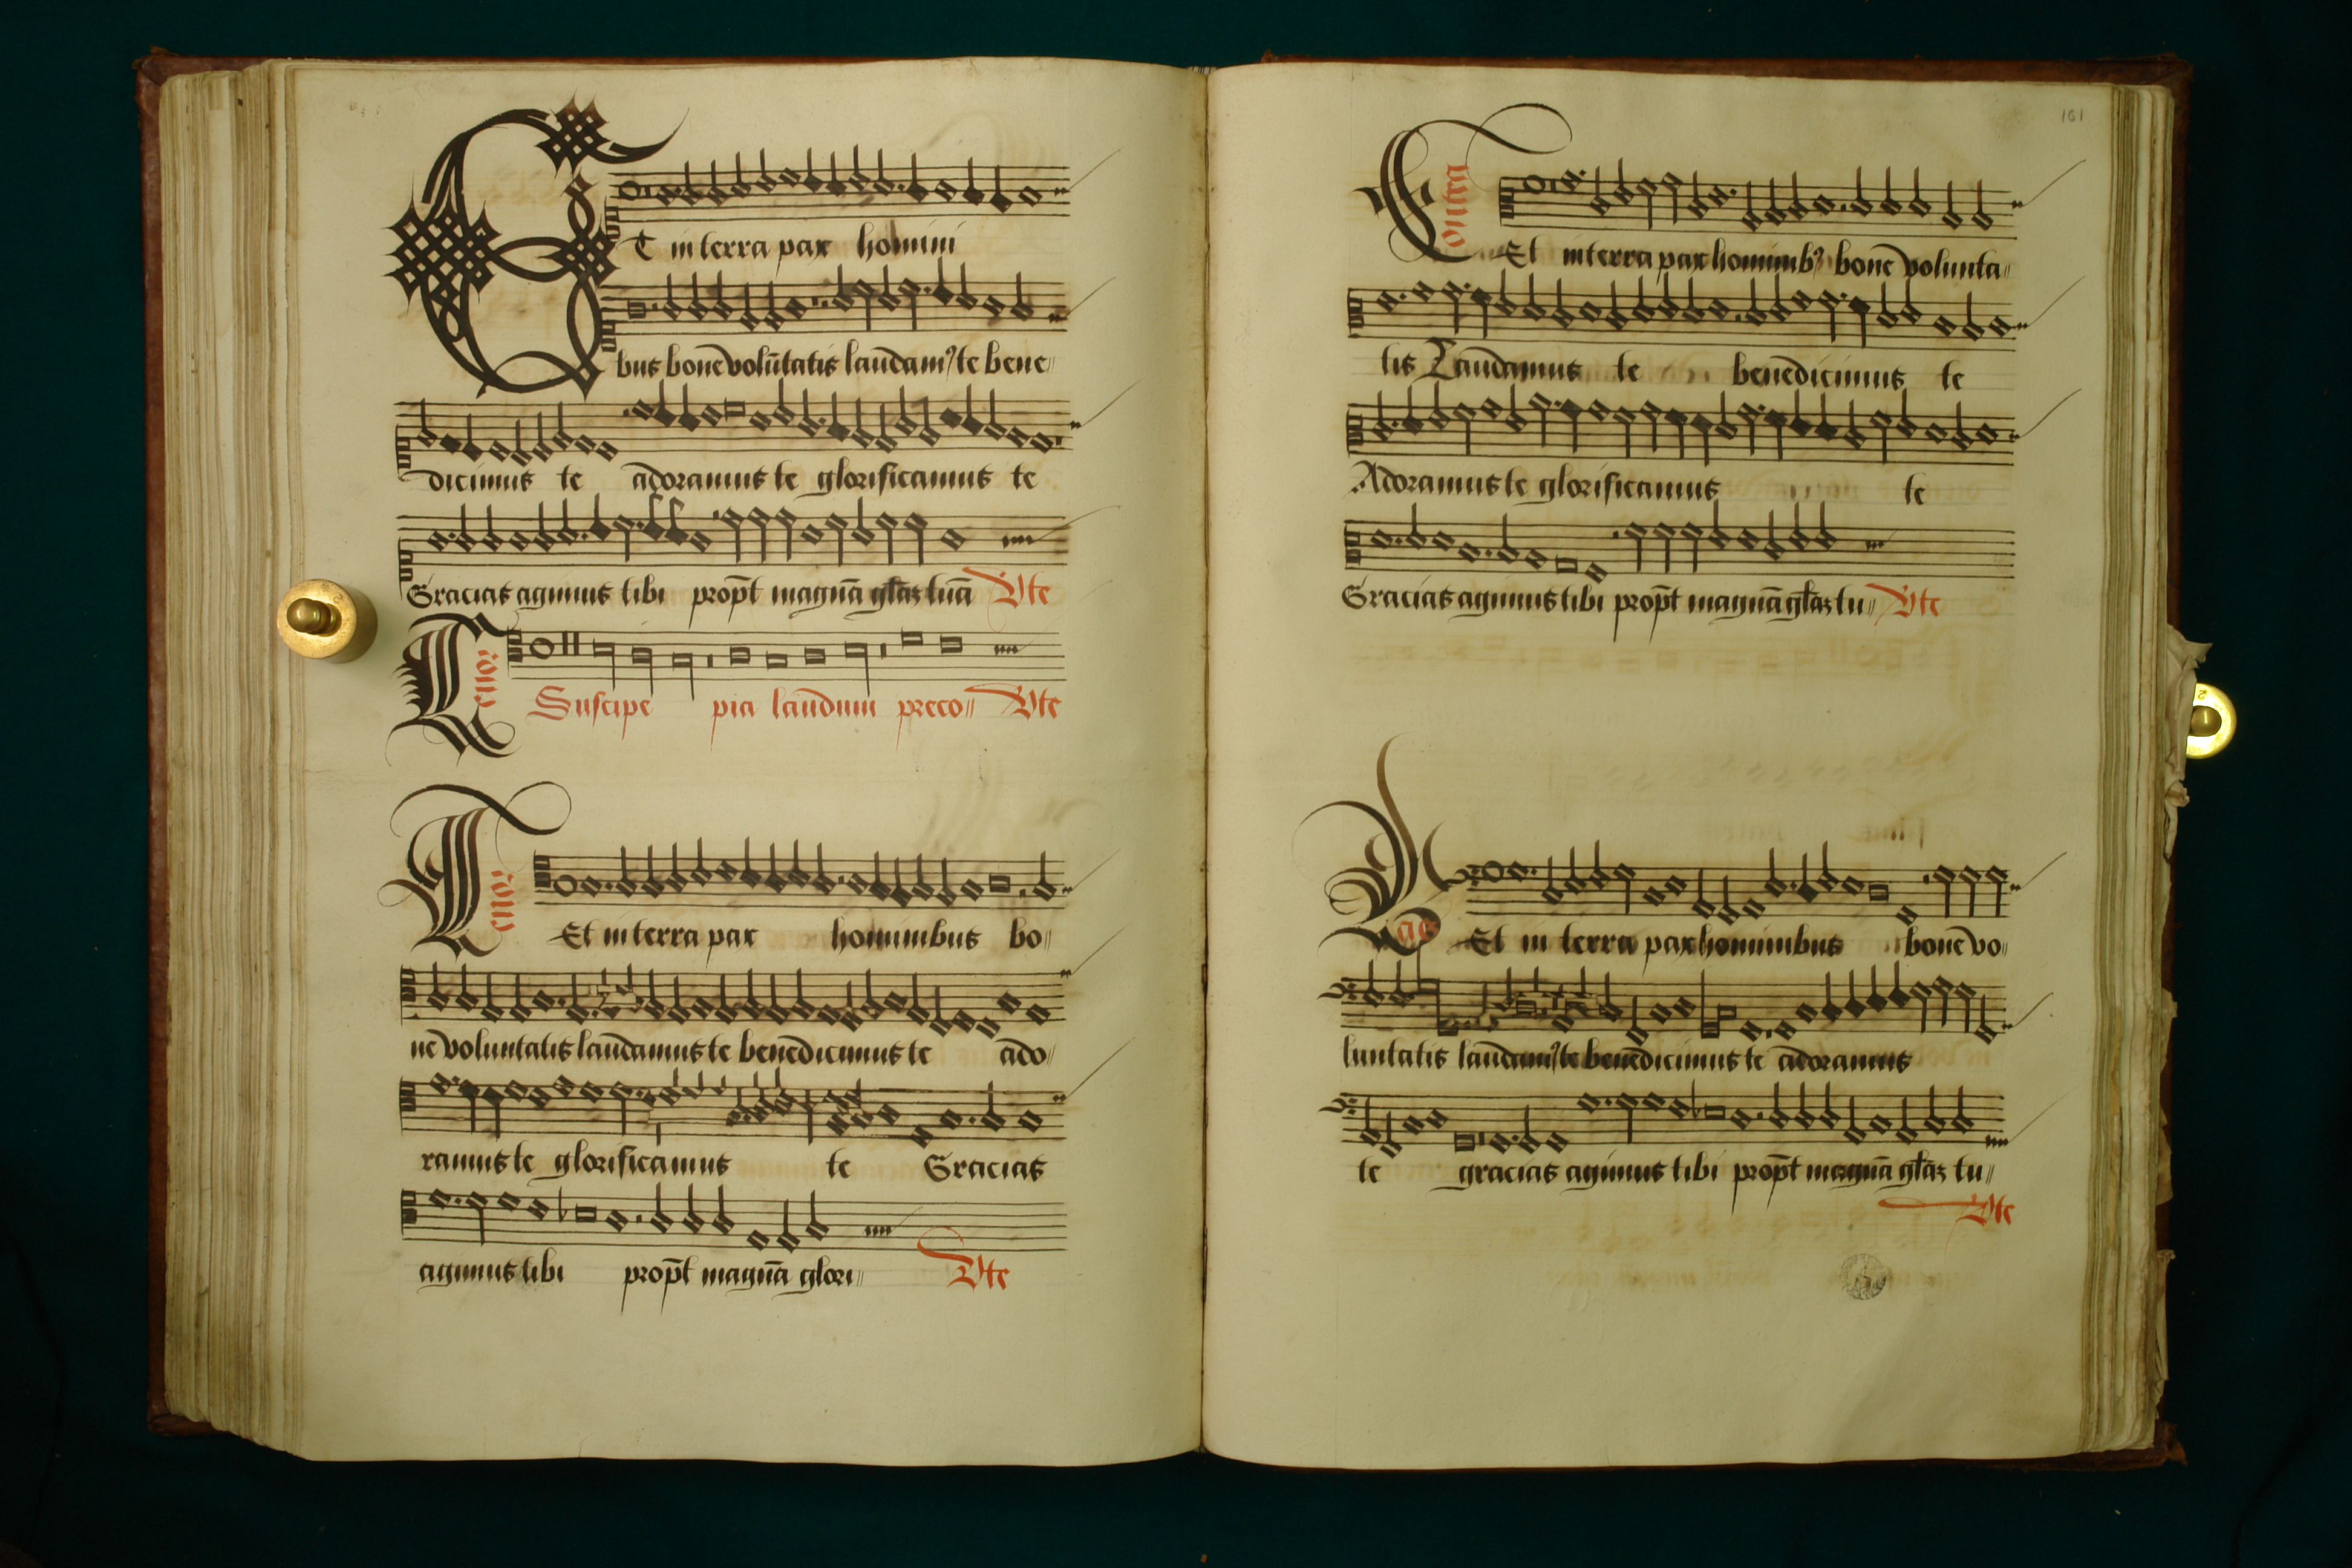 Et in terra pax homini
bus bone volūtatis laudam⁹ te bene〃
dicimus te adoramus te glorificamus te
Gracias agimus tibi prop̄t magnā gl̄aʒ tuā Vte
Tenor
Suscipe pia laudum preco〃 Vte
Tenor
Et in terra pax hominibus bo〃
ne voluntatis laudamus te benedicimus te ado〃
ramus te glorificamus te Gracias
agimus tibi prop̄t magnā glori〃 Vte
161
Contra
Et in terra pax hominib⁹ bone volunta〃
tis Laudamus te benedicimus te
Adoramus te glorificamus te
Gracias agimus tibi prop̄t magnā gl̄aʒ tu〃 Vte
Bas
Et in terra pax hominibus bone vo〃
luntatis laudam⁹ te benedicimus te adoramus
te gracias agimus tibi prop̄t magnā gl̄aʒ tu〃
Vte